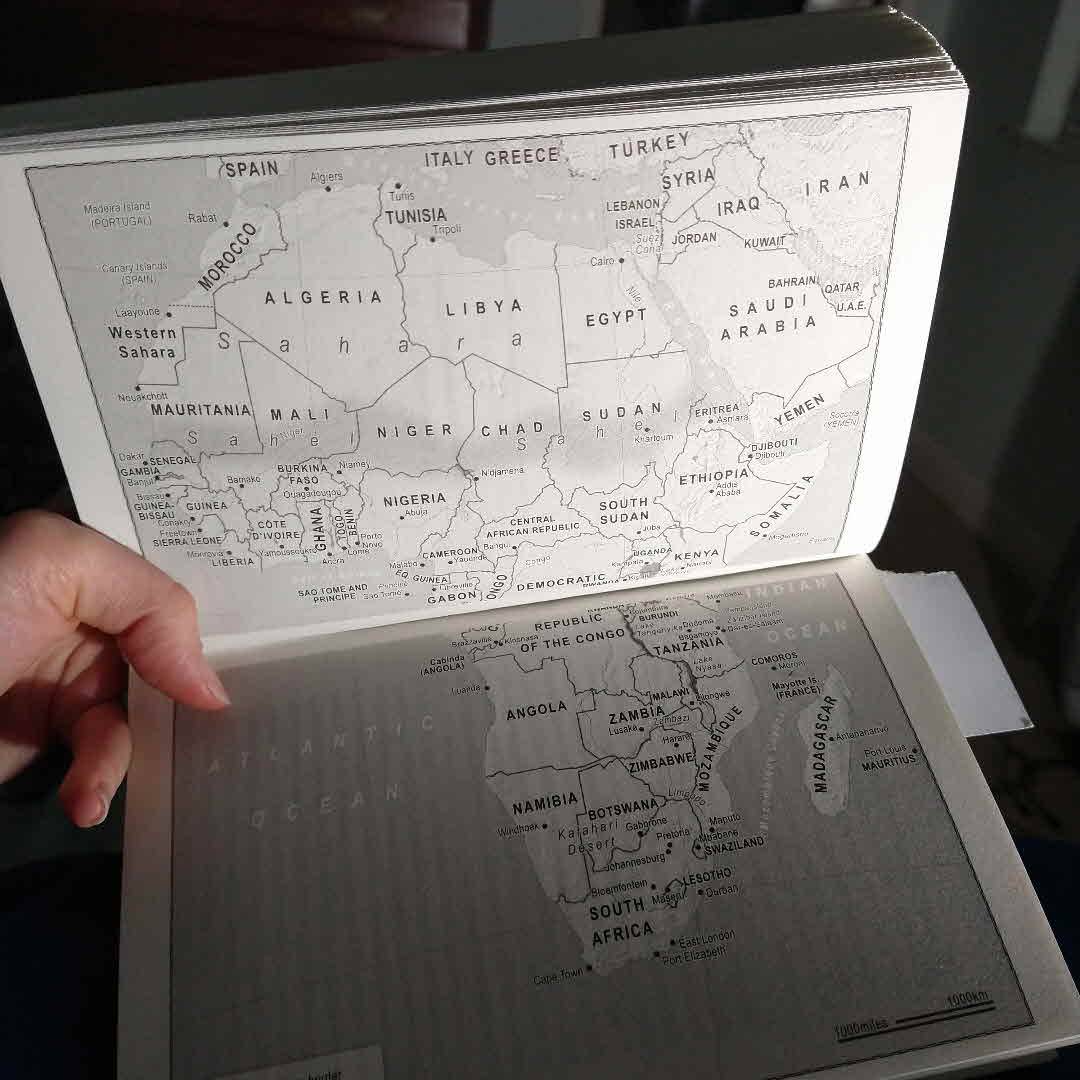 SPAIN
ITALY GREECE
TURKEY
Algiers
Tunis
SYRIA
IRAN
Madeira Island
(PORTUGAL)
Rabat
TUNISIA
Tripoli
LEBANON
ISRAEL
IRAQ
MOROCCO
Suez
Canal
JORDAN
KUWAIT
Canary Islands
(SPAIN)
Cairo
ALGERIA
LIBYA
Nile
BAHRAIN
QATAR
U.A.E.
SAUDI
ARABIA
Laayoune
EGYPT
Western
Sahara
Sahara
Nouakchott
MAURITANIA
MALI
NIGER
CHAD
SUDAN
ERITREA
Asmara
YEMEN
Socotra
(YEMEN)
Sahel
Niger
Sahel
Khartoum
Dakar
SENEGAL
GAMBIA
Banjul
BURKINA
FASO
Niamey
Ndjamena
DJIBOUTI
Djibouti
Bamako
Ouagadougou
ETHIOPIA
Addis
Ababa
Bissau
GUINEA-
BISSAU
GUINEA
NIGERIA
Abuja
SOUTH
SUDAN
SOMALIA
Conakry
Freetown
SIERRA LEONE
CÔTE
D'IVOIRE
GHANA
TOGO
BENIN
Porto
Novo
CENTRAL
AFRICAN REPUBLIC
Juba
Mogadishu
Monrovia
LIBERIA
Yamoussoukro
Accra
Lome
CAMEROON
Yaounde
Bangui
Congo
UGANDA
Kampala
KENYA
Nairobi
Malabo
EQ. GUINEA
SAO TOME AND
PRINCIPE
Principe
Sao Tome
Libreville
GABON
CONGO
DEMOCRATIC
RWANDA
Kigali
INDIAN
OCEAN
Mombasa
REPUBLIC
OF THE CONGO
BURUNDI
Lake
Tanganyika
Dodoma
Zanzibar Island
Bagamoyo
Dar es Salaam
Brazzaville
Kinshasa
TANZANIA
Cabinda
(ANGOLA)
Lake
Nyasa
COMOROS
Moroni
Luanda
Mayotte Is.
(FRANCE)
MALAWI
Lilongwe
ANGOLA
ZAMBIA
Lusaka
Zambazi
MOZAMBIQUE
MADAGASCAR
Antananarivo
ATLANTIC
OCEAN
Harare
Port Louis
MAURITIUS
ZIMBABWE
NAMIBIA
BOTSWANA
Limpopo
Windhoek
Kalahari
Desert
Gaborone
Pretoria
Maputo
Mbabane
SWAZILAND
Johannesburg
Bloemfontein
LESOTHO
Maseru
Durban
SOUTH
AFRICA
East London
Port Elizabeth
Cape Town
1000km
1000miles